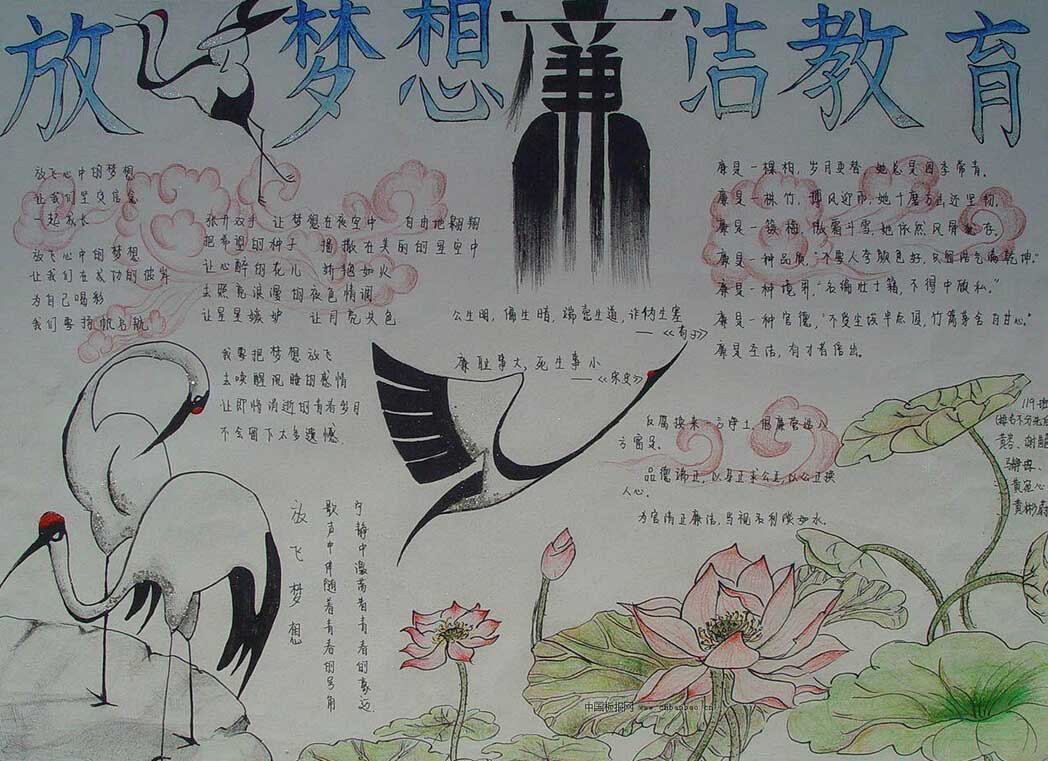 放飞梦想 廉洁教育
放飞心中的梦想
让我们
一起成长
放飞心中的梦想
让我们在成功的彼岸
为自己喝彩
我们要扬帆名航
张开双手 让梦想在夜空中 自由地翱翔
把希望的种子 播撒在美丽的星空中
让心醉的花儿 娇艳如火
去照亮浪漫 的夜色情调
让星星嫉妒 让月亮失色
我要把梦想放飞
去唤醒沉睡的感情
让即将消逝的青春岁月
不会留下太多遗憾
公生明,偏生暗,端悫生通,诈伪生塞
——《荀子》
廉耻事大,死生事小
——《宋史》
廉是一棵柏,岁月更替,她总是四季常青。
廉是一株竹,
廉是一簇梅,傲霜斗雪,她依然风屏
廉是一种品质,"不要人夸颜色好,只留清气满乾坤。"
廉是一种境界,"名编壮士籍,不得中顾私。"
廉是一种官德,
廉是圣洁,有才者倍出。
反腐换来一方净土,倡廉
方富足。
品德端正,以身正求公正,以公正换
人心。
为官清正廉洁,当视名利淡如水。
放飞梦想
歌声中伴随着青春的号角
宁静中激荡着青春的豪迈
119班
中国板报网 www.chbanbao.cn